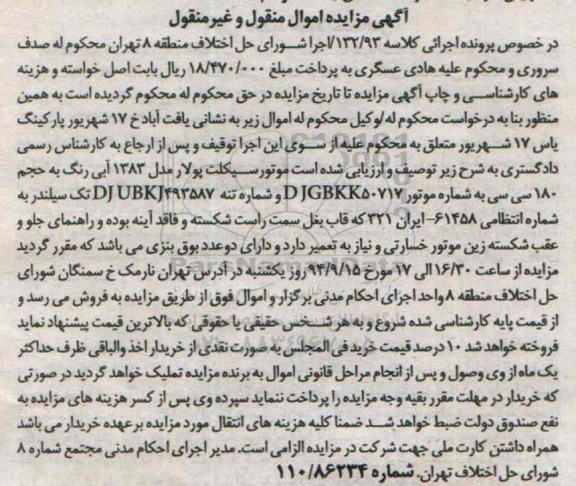 آگهی مزایده اموال منقول و غیر منقول
در خصوص پرونده اجرائی کلاسه ۱۳۲/۹۳/اجرا شورای حل اختلاف منطقه ۸ تهران محکوم له صدف
سروری و محکوم علیه هادی عسگری به پرداخت مبلغ ۱۸/۴۷۰/۰۰۰ ریال بابت اصل خواسته و هزینه
های کارشناسی و چاپ آگهی مزایده تا تاریخ مزایده در حق محکوم له محکوم گردیده است به همین
منظور بنا به درخواست محکوم له /وکیل محکوم له اموال زیر به نشانی یافت آباد خ ۱۷ شهریور پارکینگ
یاس ۱۷ شهریور متعلق به محکوم علیه از سوی این اجرا توقیف و پس از ارجاع به کارشناس رسمی
دادگستری به شرح زیر توصیف و ارزیابی شده است موتور سیکلت پولار مدل ۱۳۸۳ آبی رنگ به حجم
۱۸۰ سی سی به شماره موتور D JGBKK۵۰۷۱۷ و شماره تنه DJ UBKJ۴۹۳۵۸۷ تک سیلندر به
شماره انتظامی ۶۱۴۵۸- ایران ۳۲۱ که قاب بغل سمت راست شکسته و فاقد آینه بوده و راهنمای جلو و
عقب شکسته زین موتور خسارتی و نیاز به تعمیر دارد و دارای دو عدد بوق بنزی می باشد که مقرر گردید
مزایده از ساعت ۱۶/۳۰ الی ۱۷ مورخ ۹۴/۹/۱۵ روز یکشنبه در آدرس تهران نارمک خ سمنگان شورای
حل اختلاف منطقه ۸ واحد اجرای احکام مدنی برگزار و اموال فوق از طریق مزایده به فروش می رسد و
از قیمت پایه کارشناسی شده شروع و به هر شخص حقیقی یا حقوقی که بالاترین قیمت پیشنهاد نماید
فروخته خواهد شد ۱۰ درصد قیمت خرید فی المجلس به صورت نقدی از خریدار اخذ والباقی ظرف حداکثر
یک ماه از وی وصول و پس از انجام مراحل قانونی اموال به برنده مزایده تملیک خواهد گردید در صورتی
که خریدار در مهلت مقرر بقیه وجه مزایده را پرداخت ننماید سپرده وی پس از کسر هزینه های مزایده به
نفع صندوق دولت ضبط خواهد شد ضمنا کلیه هزینه های انتقال مورد مزایده بر عهده خریدار می باشد
همراه داشتن کارت ملی جهت شرکت در مزایده الزامی است. مدیر اجرای احکام مدنی مجتمع شماره ۸
شورای حل اختلاف تهران. شماره ۱۱۰/۸۶۲۳۴